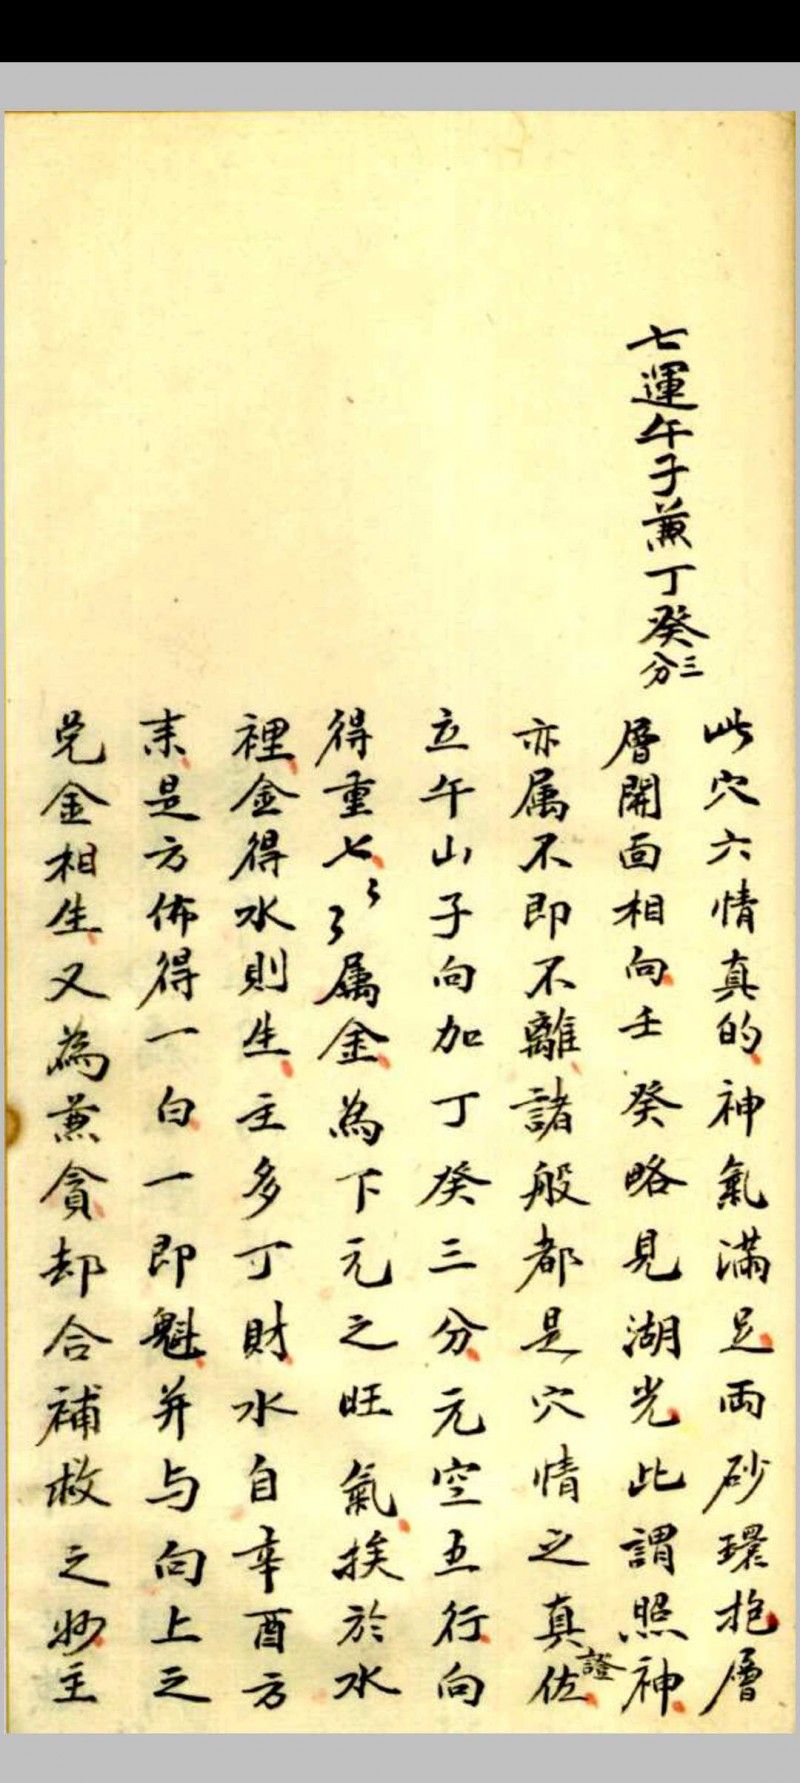 七運午子兼丁癸三分
此穴六情真的神氣滿足兩砂環抱層
層開面相向壬癸略見湖光此謂照神
亦属不即不離諸般都是穴情之真佐證
立午山子向加丁癸三分元空五行向
得重七々々属金為下元之旺氣挨於水
裡金得水則生主多丁財水自辛酉方
来是方佈得一白一即魁并与向上之
兌金相生又為兼貪却合補救之妙主